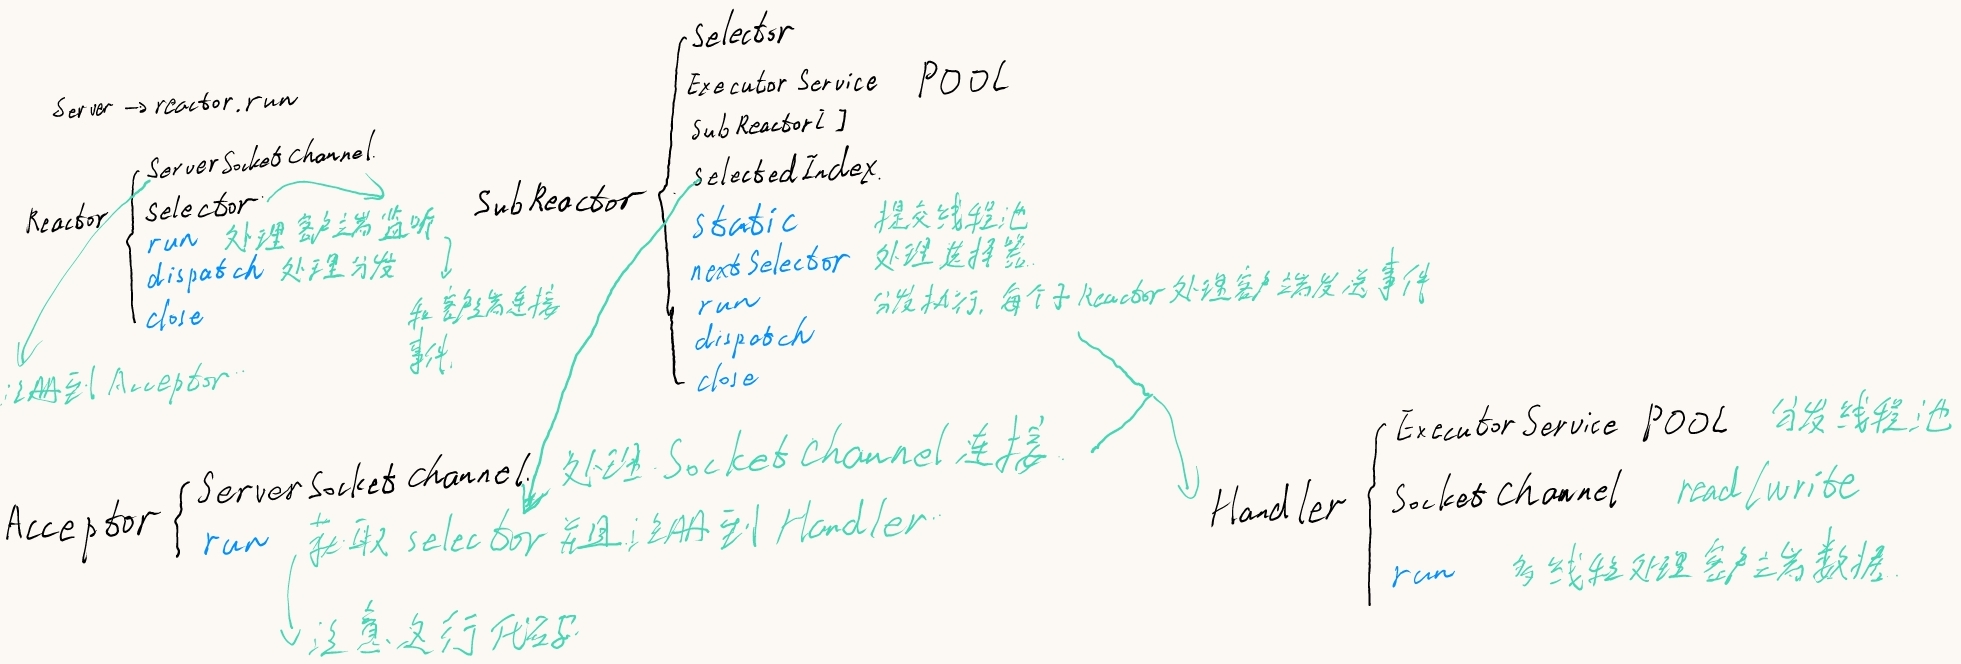 Server → reactor.run
Reactor
ServerSocketChannel.
Selector
run 处理客户端监听
dispatch 处理分发
close
和客户端连接
事件.
注册到 Acceptor
SubReactor
Selector
Executor Service POOL
SubReactor[ ]
selectedIndex.
static 提交线程池
nextSelector 处理选择器
run 分发执行, 每个子Reactor处理客户端发送事件
dispatch
close
Acceptor
ServerSocketChannel. 处理 SocketChannel 连接.
run 获取 selector 并且注册到 Handler
注意这行代码
Handler
Executor Service POOL 分发线程池
SocketChannel read/write
run 多线程处理客户端数据.